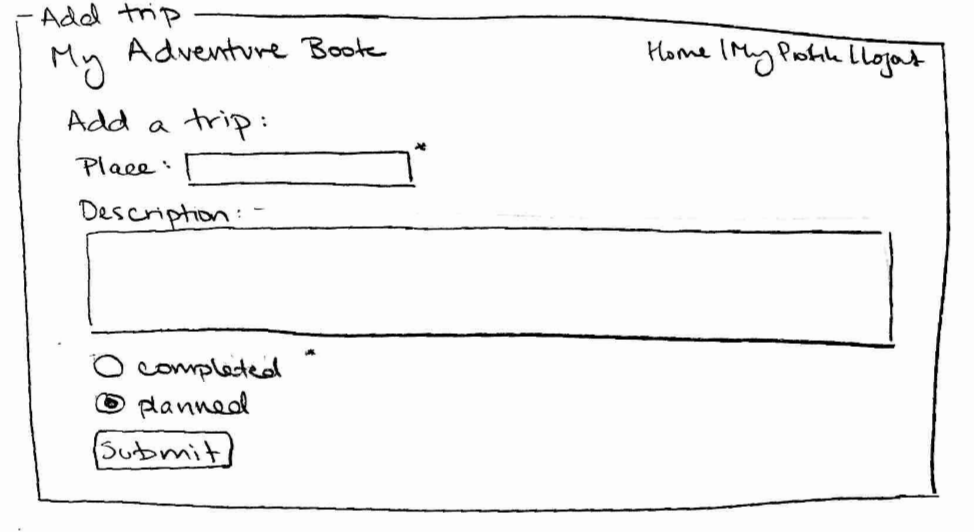 Add trip
My Adventure Book
Home | My Profile | Logout
Add a trip:
Place: *
Description: -
completed *
planned
Submit